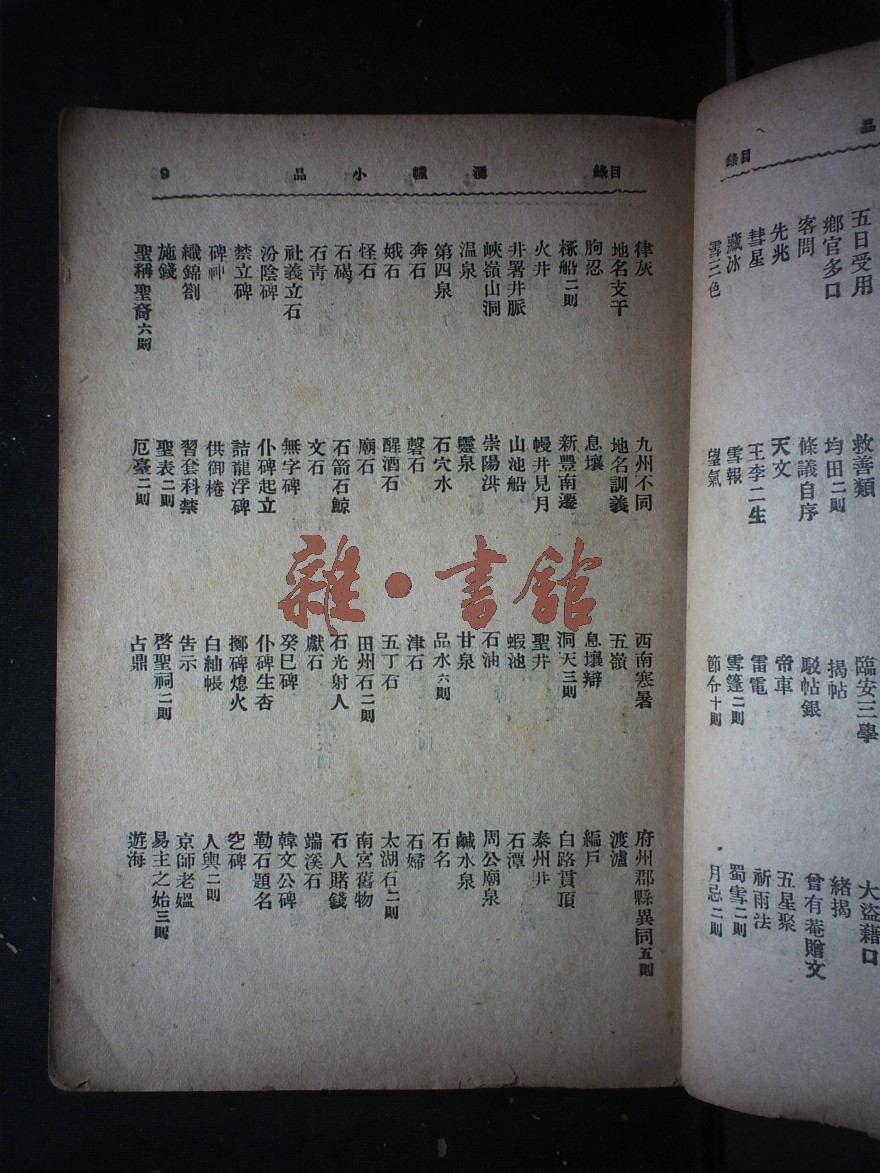 品 目錄
五日受用 救善類 臨安三學 大盜藉口
鄉官多口 均田二則 揭帖 緒揭
客問 條議自序 駁帖銀 曾有菴贈文
先兆 天文 帝車 五星聚
彗星 王李二生 雷電 祈雨法
藏冰 雪報 雪篷二則 蜀雪二則
雪三色 望氣 節令十則 月忌二則
目錄 湧幢小品 9
律灰 九州不同 西南寒暑 府州郡縣異同五則
地名支干 地名訓義 五嶺 渡瀘
朐忍 息壤 息壤辯 編戶
船二則 新豐南遷 洞天三則 白路貫頂
火井 幔井見月 聖井 泰州井
井署井脈 山池船 蝦池 石潭
峽嶺山洞 崇陽洪 石油 周公廟泉
温泉 靈泉 甘泉 鹹水泉
第四泉 石穴水 品水六則 石名
奔石 磬石 津石 石婦
娥石 醒酒石 五丁石 太湖石二則
怪石 廟石 田州石二則 南宮舊物
石碣 石箭石鯨 石光射人 石人賭錢
石靑 文石 獻石 端溪石
社義立石 無字碑 癸巳碑 韓文公碑
汾陰碑 仆碑起立 仆碑生杏 勒石題名
禁立碑 詰龍浮碑 擲碑熄火 窆碑
碑神 供御棬 白紬帳 人輿二則
織錦劄 習套科禁 告示 京師老媼
施錢 聖表二則 啓聖祠二則 易主之始三則
聖稱聖裔六則 厄臺二則 占鼎 遊海
雜·書館